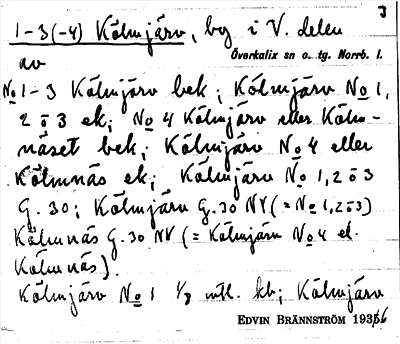 3
1-3(-4) Kölmjärv, by i V. delen
av Överkalix sn o. tg. Norrb. l.
No 1-3 Kölmjärv bek; Kölmjärv No 1,
2 o 3 ek; No 4 Kölmjärv eller Kölm-
näset bek; Kölmjärv No 4 eller
Kölmnäs ek; Kölmjärv No 1, 2 o 3
G. 30; Kölmjärv G. 30 NV (= No 1, 2 o 3)
Kölmnäs G. 30 NV (= Kölmjärv No 4 el.
Kölmnäs).
Kölmjärv No 1 1/8 mtl. kb; Kölmjärv
EDVIN BRÄNNSTRÖM 1936